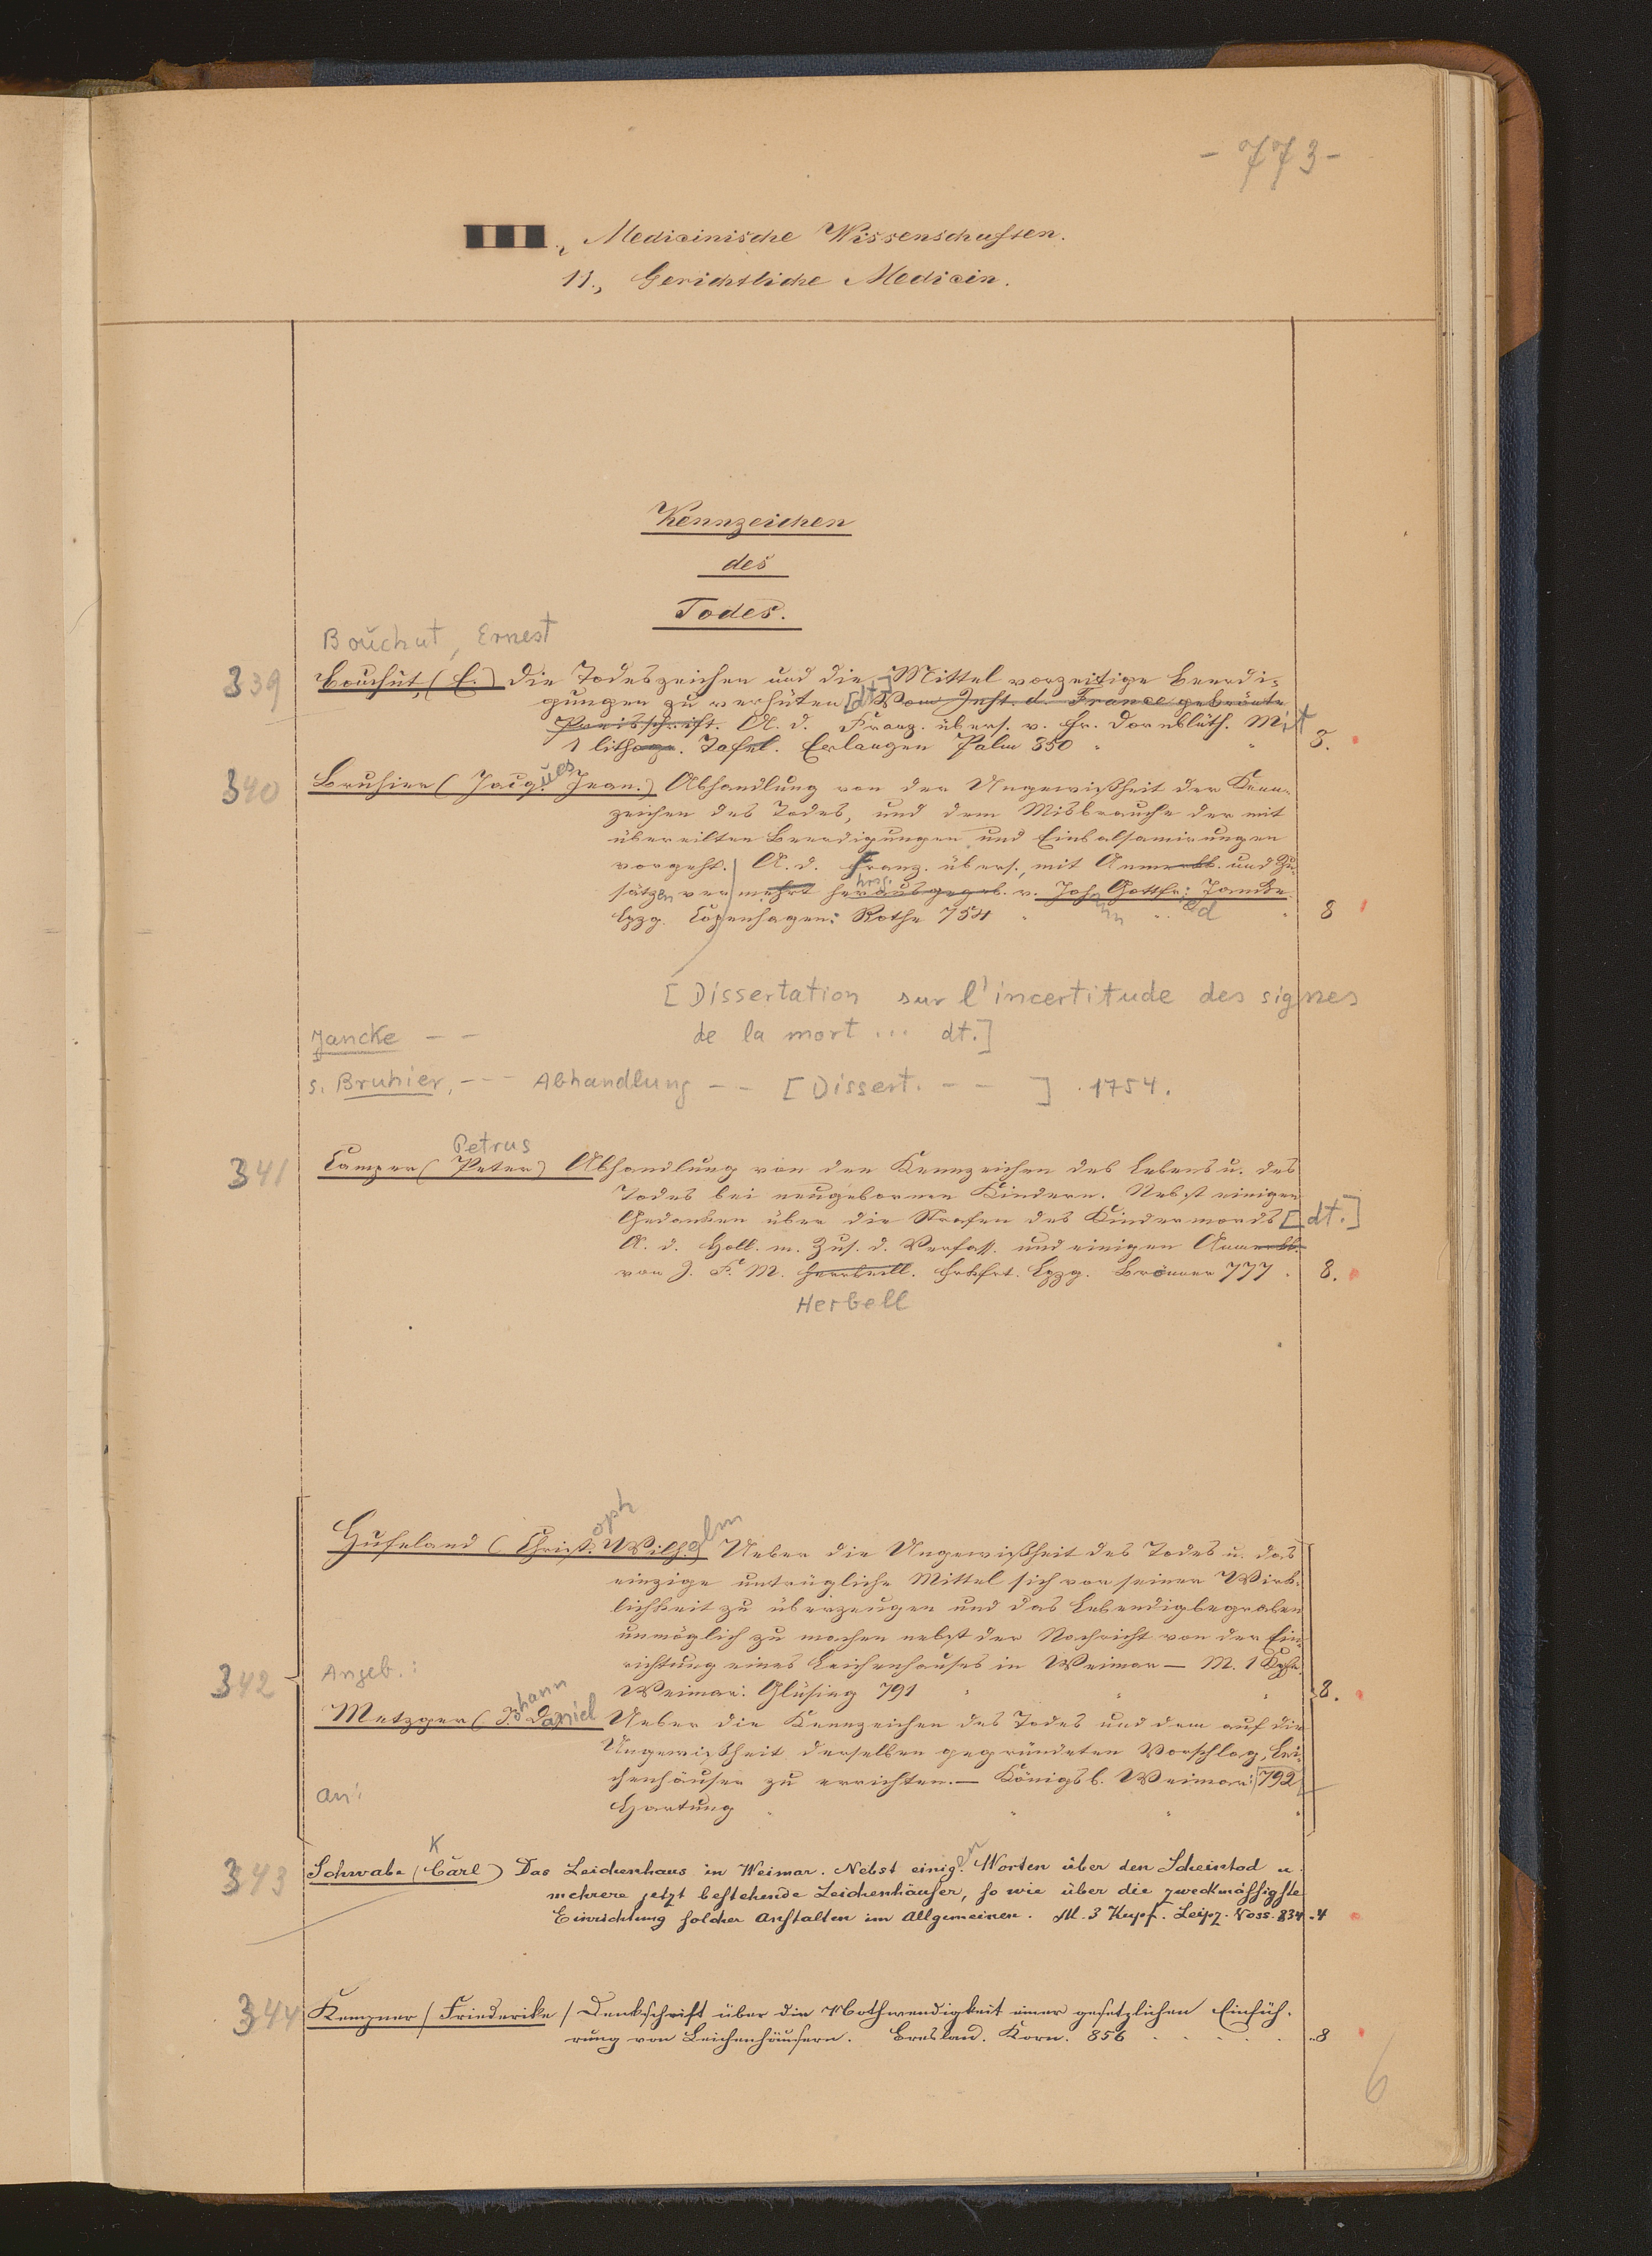 - 773 -
Medicinische Wissenschaften.
11., Gerichtliche Medicin.
Kennzeichen
des
Todes.
Bouchut, Ernest
339 Bouchut, (E.) Die Todeszeichen und die Mittel vorzeitige Beerdi-
gungen zu verhüten [dt.] Vom Inst. d. France gekrönte
Preisschrift. A. d. Franz. übers. v. Fr. Dornblüth. Mit
1 lithogr. Tafel. Erlangen Palm 850 8.
340 Bruhier (Jacques Jean.) Abhandlung von der Ungewißheit der Kenn-
zeichen des Todes, und dem Misbrauche der mit
übereilten Beerdigungen und Einbalsamirungen
vorgeht. A. d. Franz. übers., mit Anmerkk. und Zu-
hrsg.
sätzen vermehrt herausgegeb. v. Joh. Gottfr: Jancke
Lpzg. Copenhagen: Rothe 754 8
[Dissertation sur l'incertitude des signes
de la mort ... dt.]
Jancke - -
s. Bruhier, - - - Abhandlung - - [Dissert. - - ] . 1754.
Petrus
341 Camper (Peter) Abhandlung von den Kennzeichen des Lebens u. des
Todes bei neugebornen Kindern. Nebst einigen
Gedanken über die Strafen des Kindermords [dt.]
A. d. Holl. m. Zus. d. Verfass. und einigen Anmerkk.
von J. F. M. Herrbell. Frkfrt. Lpzg. Brönner 777 8.
Herbell
Hufeland (Christoph Wilhelm) Ueber die Ungewißheit des Todes u. das
einzige untrügliche Mittel sich von seiner Wirk-
lichkeit zu überzeugen und das Lebendigbegraben
unmöglich zu machen nebst der Nachricht von der Ein-
richtung eines Leichenhauses in Weimar — M. 1 Kpfr.
342 Angeb.: Weimar: Glüsing 791 8.
Metzger (Johann Daniel Ueber die Kennzeichen des Todes und dem auf die
Ungewißheit derselben gegründeten Vorschlag, Lei-
chenhäuser zu errichten. — Königsb. Weimar: 792
an: Hartung
K
343 Schwabe (Carl) Das Leichenhaus in Weimar. Nebst einigen Worten über den Scheintod u.
mehrere jetzt bestehende Leichenhäuser, so wie über die zweckmässigste
Einrichtung solcher Anstalten im Allgemeinen. M. 3 Kupf. Leipz. Voss. 834 4
344 Kempner (Friederike) Denkschrift über die Nothwendigkeit einer gesetzlichen Einfüh-
rung von Leichenhäusern. Breslau. Korn. 856 8
6